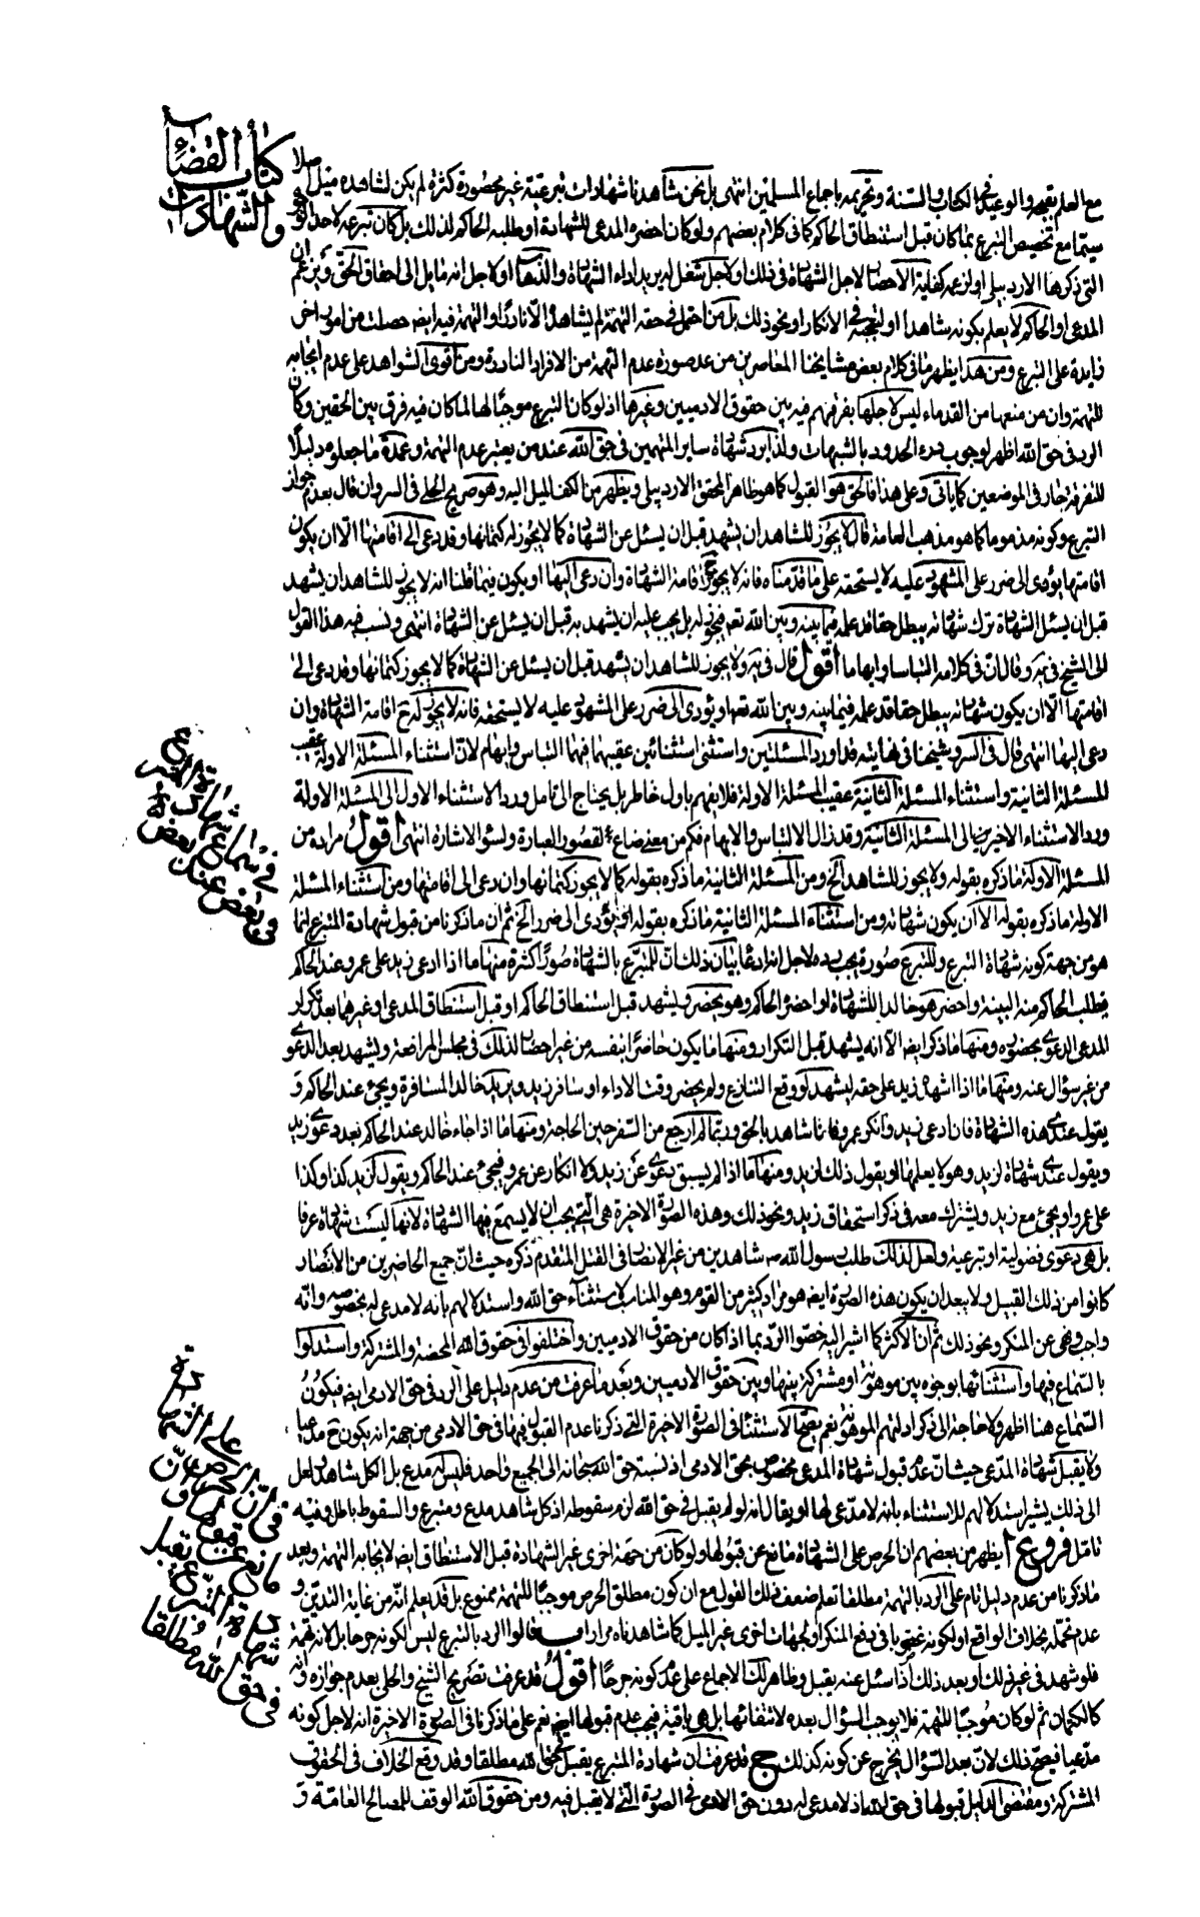 كتاب القضاء
والشهادات
مع العلم بقبحه والوعيد في الكتاب والسنة وتحريمه باجماع المسلمين انتهى بل نحن شاهدنا شهادات تبرعية غير محصورة كثرة لم يكن لشاهده ميل اصلا
سيما مع تخصيص التبرع بما كان قبل استنطاق الحاكم كما في كلام بعضهم ولو كان احضره المدعى للشهادة او طلبه الحاكم لذلك بل كان تبرعه لاحد الوجوه
التي ذكرها الاردبيلى او لزعمه كفاية الاحضار لاجل الشهادة في ذلك او لاجل شغل له يريد اداء الشهادة والذهاب او لاجل انه مايل الى احقاق الحق ويزعم ان
المدعى او الحاكم لا يعلم بكونه شاهدا او لتعجبه في الانكار او نحو ذلك بل من احتمل في حقه التهمة لم يشاهد الا نادرا او التهمة فيه ايضه حصلت من امور اخر
زايدة على التبرع ومن هذا يظهر ما في كلام بعض مشايخنا المعاصرين من عد صورة عدم التهمة من الافراد النادرة ومن اقوى الشواهد على عدم ايجابه
للتهمة وان من منعها من القدماء ليس لاجلها تفرقتهم فيه بين حقوق الادميين وغيرها اذ لو كان التبرع موجبا لها لما كان فيه فرق بين الحقين وكان
الرد في حق الله اظهر لوجوب درء الحدود بالشبهات ولذا يرد شهادة ساير المتهمين في حق الله عند من يعتبر عدم التهمة وعمدة ما جعلوه دليلا
للتفرقة جار في الموضعين كما ياتى وعلى هذا فالحق هو القبول كما هو ظاهر المحقق الاردبيلى ويظهر من الكف الميل اليه وهو صريح الحلى في السراير وان قال بعدم جواز
التبرع وكونه مذموما كما هو مذهب العامة قال لا يجوز للشاهد ان يشهد قبل ان يسئل عن الشهادة كما لا يجوز له كتمانها وقد دعى الى اقامتها الا ان يكون
اقامتها يؤدى الى ضرر على المشهود عليه لا يستحقه على ما قدمناه فانه لا يجوز ح اقامة الشهادة وان دعى اليها او يكون فيما قلنا انه لا يجوز للشاهد ان يشهد
قبل ان يسئل الشهادة ترك شهادته يبطل حقا قد علمه فيما بينه وبين الله تعه فيجوز له بل يجب عليه ان يشهد به قبل ان يسئل عن الشهادة انتهى ونسب فيه هذا القول
الى الشيخ في يه وقال ان في كلامه التباسا وايهاما اقول قال في يه ولا يجوز للشاهد ان يشهد قبل ان يسئل عن الشهادة كما لا يجوز كتمانها وقد دعى الى
اقامتها الا ان يكون شهادته يبطل حقا قد علمه فيما بينه وبين الله تعه او يؤدى الى ضرر على المشهود عليه لا يستحقه فانه لا يجوز له ح اقامة الشهادة وان
دعى اليها انتهى قال في السراير وشيخنا في نهايته قد اورد المسئلتين واستثنى استثنائين عقيبهما فيهما التباس وايهام لان استثناء المسئلة الاولة عقيب
المسئلة الثانية واستثناء المسئلة الثانية عقيب المسئلة الاولة فلا يفهم باول خاطر بل يحتاج الى تامل ورد الاستثناء الاول الى المسئلة الاولة
ورد الاستثناء الاخير الى المسئلة الثانية وقد زال الالتباس والابهام فكم من معنى ضاع لقصور العبارة ولسوء الاشارة انتهى اقول مراده من
المسئلة الاولة ما ذكره بقوله ولا يجوز للشاهد الخ ومن المسئلة الثانية ما ذكره بقوله كما لا يجوز كتمانها وان دعى الى اقامتها ومن استثناء المسئلة
الاولة ما ذكره بقوله الا ان يكون شهادته ومن استثناء المسئلة الثانية ما ذكره بقوله او يؤدى الى ضرر الخ ثم ان ما ذكرنا من قبول شهادة المتبرع انما
هو من جهة كونه شهادة التبرع وللتبرع صورة يجب رده لاجل انه ادعاء بيان ذلك ان للتبرع بالشهادة صورا كثيرة منها ما اذا ادعى زيد على عمرو عند الحاكم
فطلب الحاكم منه البينة واحضر هو خالدا للشهادة او احضره الحاكم وهو يحضر ويشهد قبل استنطاق الحاكم او قبل استنطاق المدعى او غيرهما بعد تكرار
المدعى الدعوى بحضوره ومنها ما ذكر ايضه الا انه يشهد قبل التكرار ومنها ما يكون حاضرا بنفسه من غير احضار لذلك في مجلس المرافعة ويشهد بعد الدعوى
من غير سؤال عنه ومنها ما اذا اشهده زيد على حقه ليشهد لو وقع التنازع ولم يحضر وقت الاداء او سافر زيد ويريد خالد المسافرة ويجئ عند الحاكم و
يقول عندى هذه الشهادة فان ادعى زيد وانكر عمرو فانا شاهد بالحق وربما لم ارجع من السفر حين الحاجة ومنها ما اذا جاء خالد عند الحاكم بعد دعوى زيد
ويقول عندى شهادة لزيد وهو لا يعلمها او يقول ذلك لزيد ومنها ما اذا لم يسبق دعوى عن زيد ولا انكار عن عمرو فيجئ عند الحاكم ويقول لزيد كذا وكذا
على عمرو او يجئ مع زيد ويشترك معه في ذكر استحقاق زيد ونحو ذلك وهذه الصورة الاخيرة هي التي يجب ان لا يسمع فيها الشهادة لانها ليست شهادة عرفا
بل هي دعوى فضولية او تبرعية ولعل لذلك طلب رسول الله ص شاهدين من غير الانصار في القتل المتقدم ذكره حيث ان جميع الحاضرين من الانصار
كانوا من ذلك القبيل ولا يبعد ان يكون هذه الصورة ايضه هو مراد كثير من القوم وهو المناسب لاستثناء حق الله واستدلالهم بانه لا مدعى له بخصوصه وانه
واجب ونهى عن المنكر ونحو ذلك ثم ان الاكثر كما اشير اليه خصوا الرد بما اذا كان من حقوق الادميين واختلفوا في حقوق الله المحضة والمشتركة واستدلوا
بالسماع فيها واستثنائها بوجوه بين موهونة او مشتركة بينها وبين حقوق الادميين وبعد ما عرفت من عدم دليل على الرد في حق الادمى ايضه فيكون
السماع هنا اظهر ولا حاجة الى ذكر ادلتهم الموهونة نعم يصح الاستثناء في الصورة الاخيرة التي ذكرنا عدم القبول فيها في حق الادمى من جهة انه يكون ح مدعيا
ولا يقبل شهادة المدعى حيث ان عدم قبول شهادة المدعى مخصوص بحق الادمى اذ نسبة حق الله سبحانه الى الجميع واحد فليس له مدع بل الكل شاهد ولعل
الى ذلك يشير استدلالهم للاستثناء بانه لا مدعى لها او يقال انه لو لم يقبل في حق الله لزم سقوطه اذ كل شاهد مدع ومتبرع والسقوط باطل وفيه
تامل فروع ا يظهر من بعضهم ان الحرص على الشهادة مانع عن قبولها ولو كان من جهة اخرى غير الشهادة قبل الاستنطاق ايضه لايجابه التهمة وبعد
ما ذكرنا من عدم دليل تام على الرد بالتهمة مطلقا تعلم ضعف ذلك القول مع ان كون مطلق الحرص موجبا للتهمة ممنوع بل قد يعلم انه من غاية التدين و
عدم تحمله بخلاف الواقع او لكونه غيورا في دفع المنكر او لجهات اخرى غير الميل كما شاهدناه مرارا ب قالوا الرد بالتبرع ليس لكونه جرحا بل لانه تهمة
فلو شهد في غير ذلك او بعد ذلك اذا سئل عنه يقبل وظاهر لك الاجماع على عدم كونه جرحا اقول قد عرفت تصريح الشيخ والحلى بعدم جوازه وانه
كالكتمان ثم لو كان موجبا للتهمة فلا يوجب السؤال بعده لانتفائها بل هي باقية فيجب عدم قبولها ايضه نعم على ما ذكرنا في الصورة الاخيرة انه لاجل كونه
مدعيا فيصح ذلك لان بعد السؤال يخرج عن كونه كذلك ج قد عرفت ان شهادة المتبرع يقبل في حق الله مطلقا وقد وقع الخلاف في الحقوق
المشتركة ومقتضى الدليل قبولها في حق الله اذ لا مدعى له دون حق الادمى في الصورة التي لا يقبل فيه ومن حقوق الله الوقف للمصالح العامة و
في سماع شهادة المتبرع
في بعض عند بعض
في ان الحرص على الشهادة
مانع عن قبولها و
شهادة المتبرع تقبل
في حق الله مطلقا